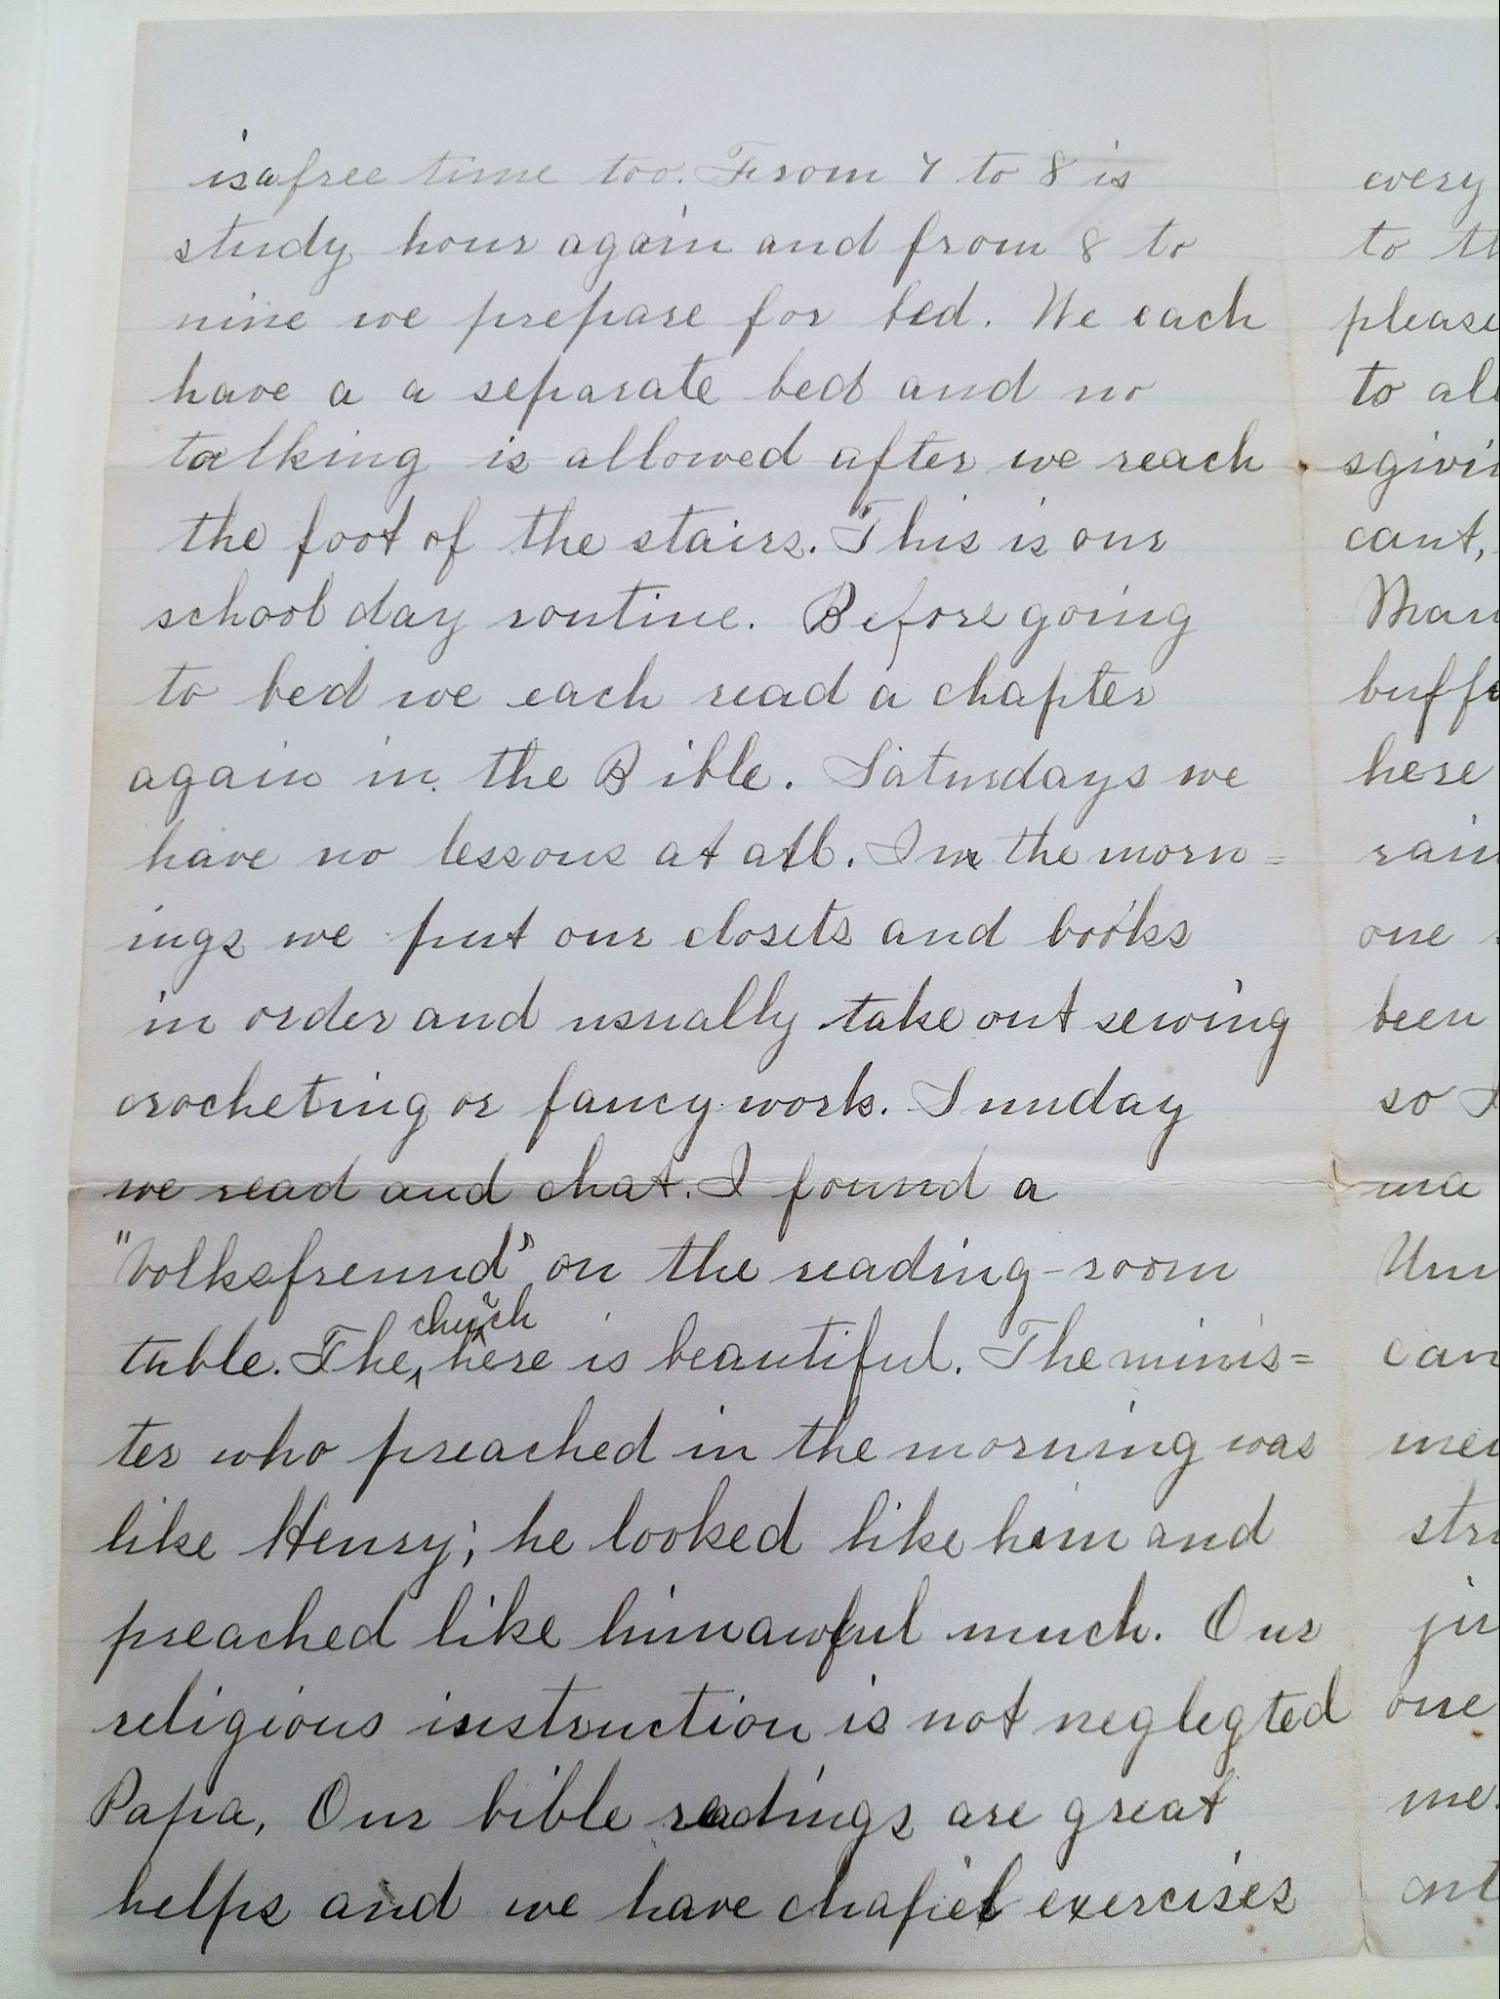 is a free time too. From 7 to 8 is
study hour again and from 8 to
nine we prepare for bed. We each
have a a separate bed and no
talking is allowed after we reach
the foot of the stairs. This is our
school day routine. Before going
to bed we each read a chapter
again in the Bible. Saturdays we
have no lessons at all. In the morn=
ings we put our closets and books
in order and usually take out sewing
crocheting or fancy work. Sunday
we read and chat. I found a
"Volksfreund" on the reading-room
table. The church here is beautiful. The minis=
ter who preached in the morning was
like Henry; he looked like him and
preached like him awful much. Our
religious instruction is not neglegted
Papa, Our bible readings are great
helps and we have chapiel exercises
every
to
please
to
cant,
here
one
been
so
one
me.